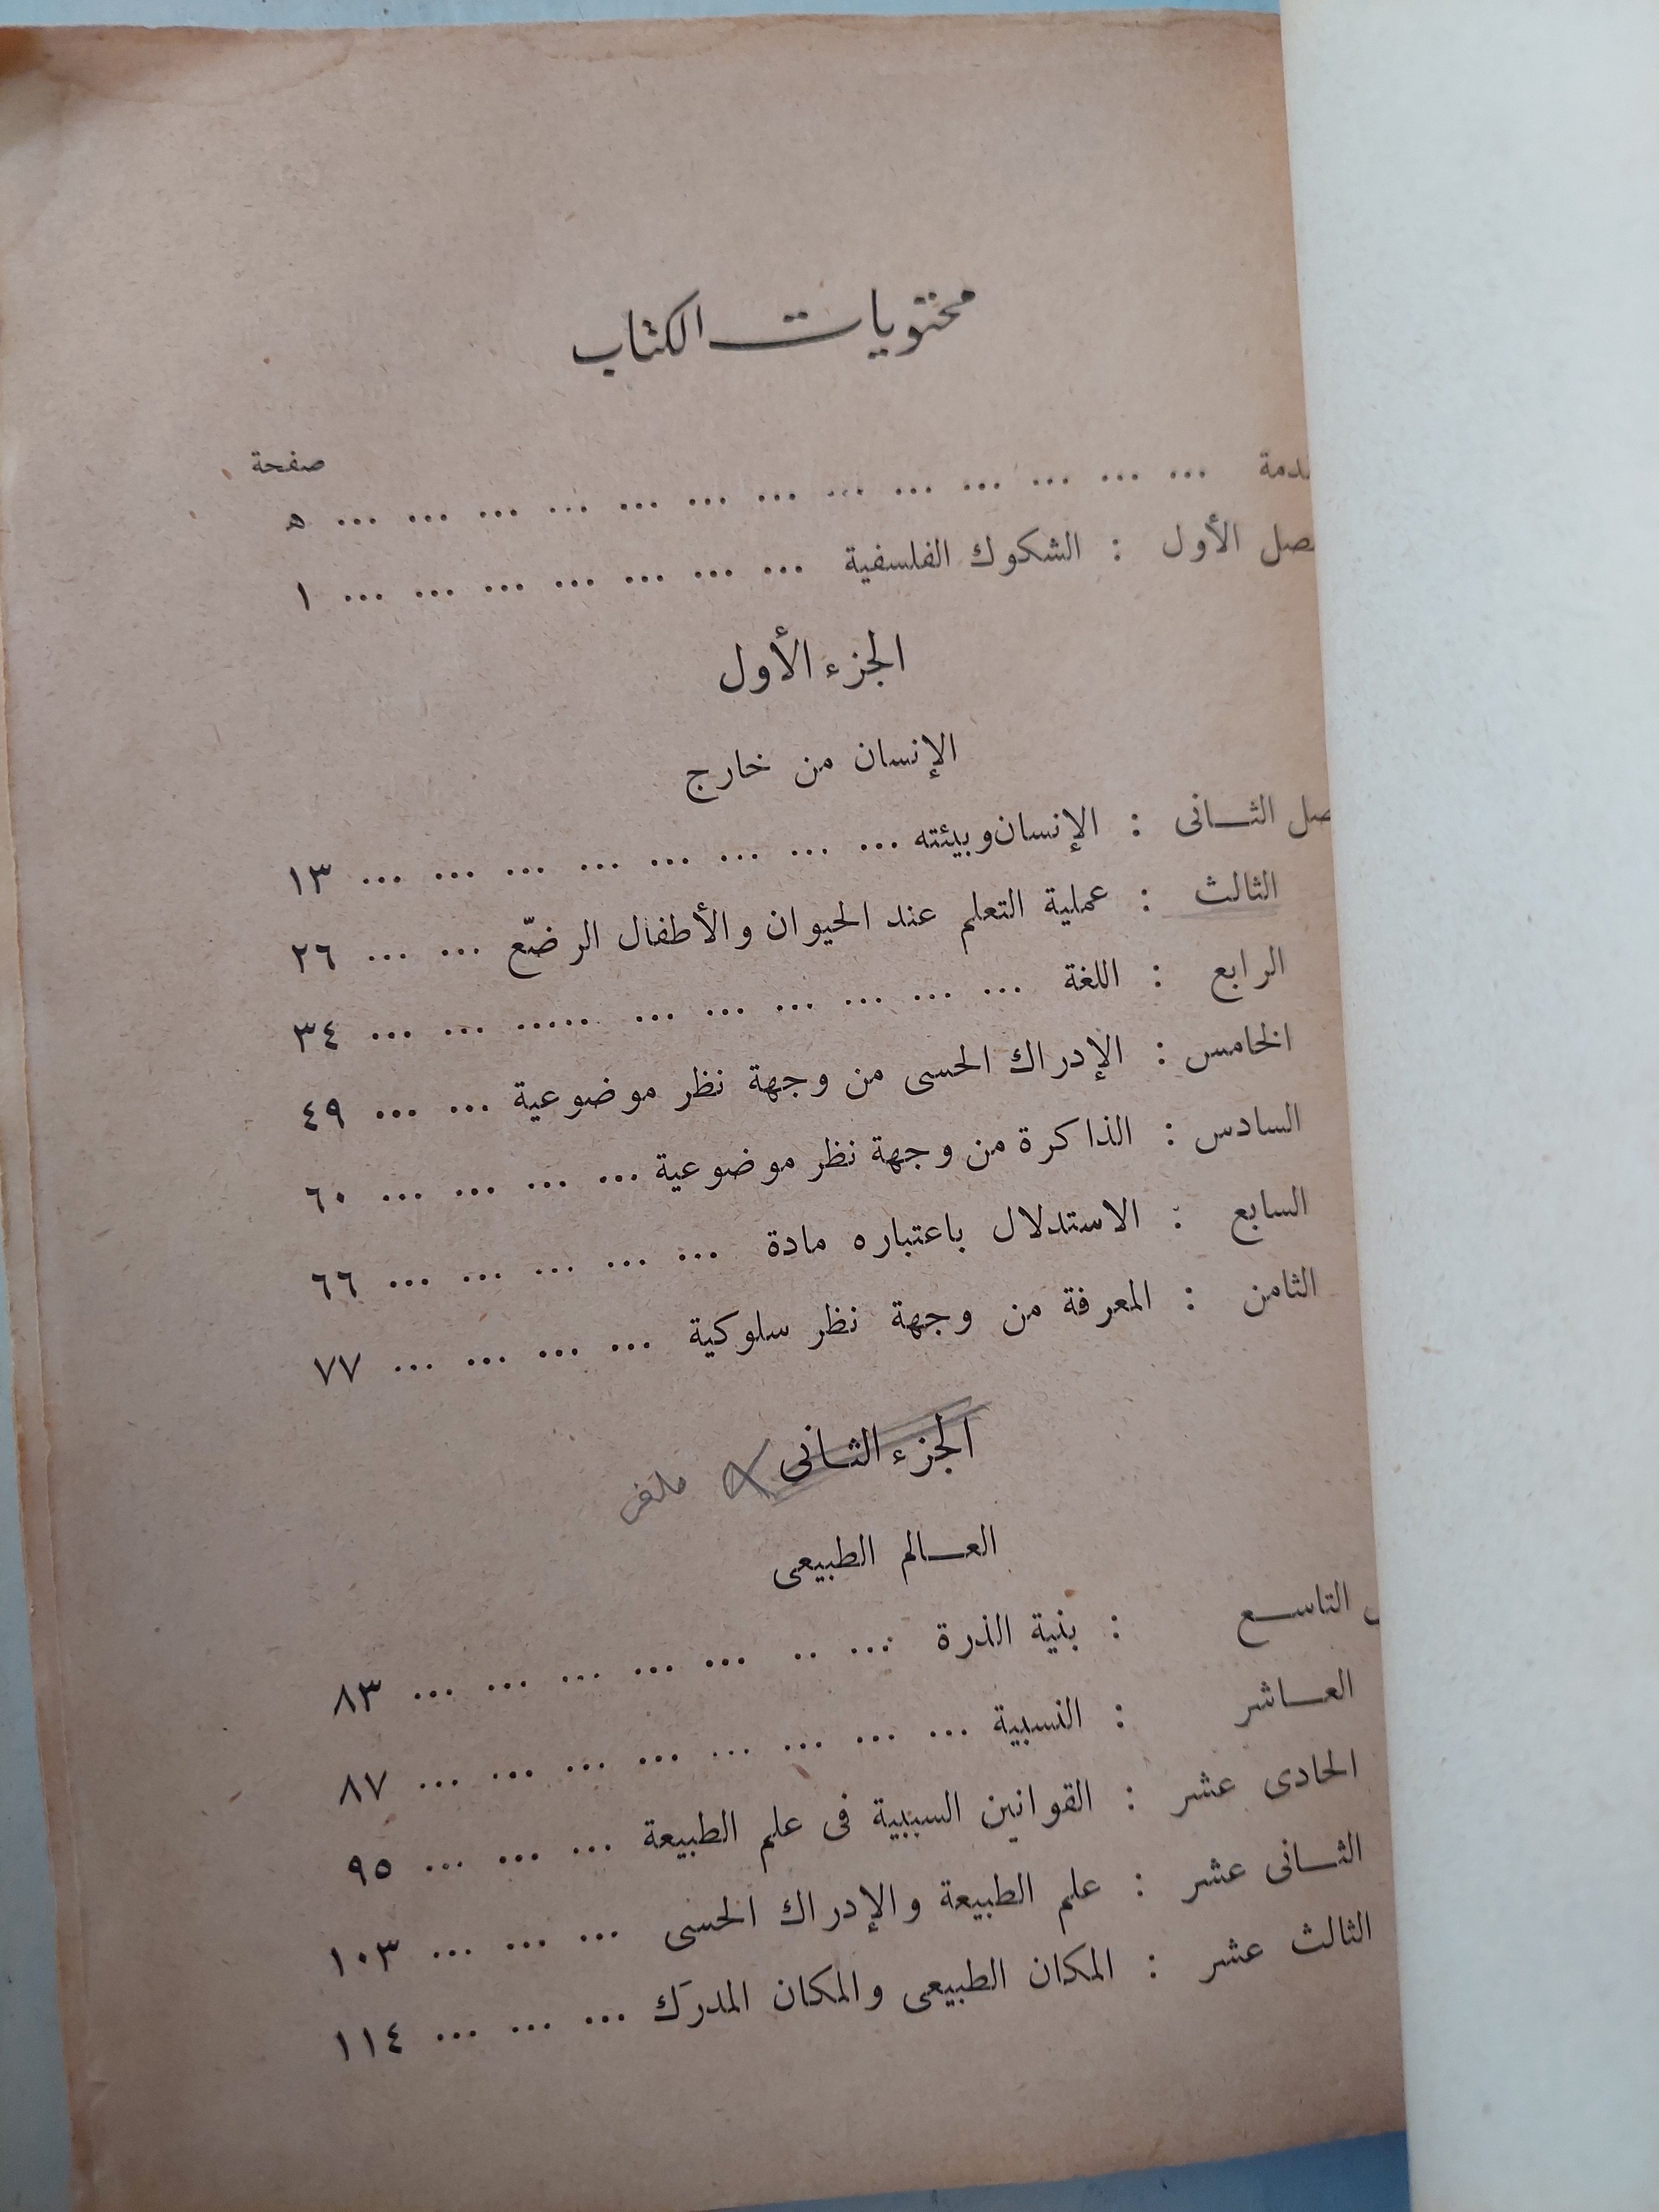 محتويات الكتاب
صفحة
دمة ... ... ... ... ... ... ... ... ... ... ... ... ... ه
صل الأول : الشكوك الفلسفية ... ... ... ... ... ... ... ١
الجزء الأول
الإنسان من خارج
صل الثـانى : الإنسان وبيئته ... ... ... ... ... ... ... ... ١٣
الثالث : عملية التعلم عند الحيوان والأطفال الرضّع ... ... ٢٦
الرابع : اللغة ... ... ... ... ... ... ..... ... ... ٣٤
الخامس : الإدراك الحسى من وجهة نظر موضوعية ... ... ٤٩
السادس : الذاكرة من وجهة نظر موضوعية ... ... ... ... ٦٠
السابع : الاستدلال باعتباره مادة ... ... ... ... ... ٦٦
الثامن : المعرفة من وجهة نظر سلوكية ... ... ... ... ٧٧
الجزء الثـانى
العـالم الطبيعى
التاسـع : بنية الذرة ... .. ... ... ... ... ... ٨٣
العـاشر : النسبية ... ... ... ... ... ... ... ... ٨٧
الحادى عشر : القوانين السببية فى علم الطبيعة ... ... ... ٩٥
الثـانى عشر : علم الطبيعة والإدراك الحسى ... ... ... ١٠٣
الثالث عشر : المكان الطبيعى والمكان المدرَك ... ... ... ١١٤